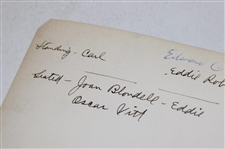 Standing - Carl
Edward
Eddie Rob
Seated - Joan Blondell - Eddie
Oscar Vitt